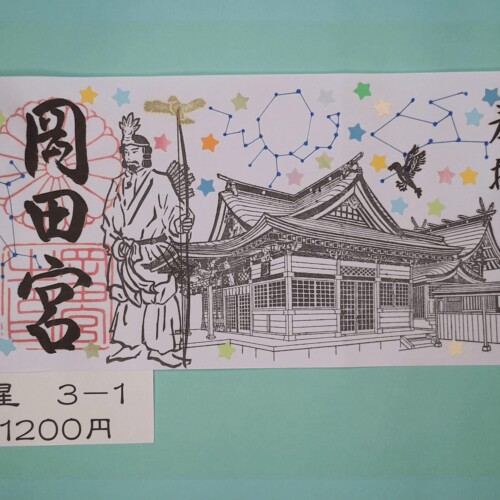 岡田宮
星 3-1
1200円